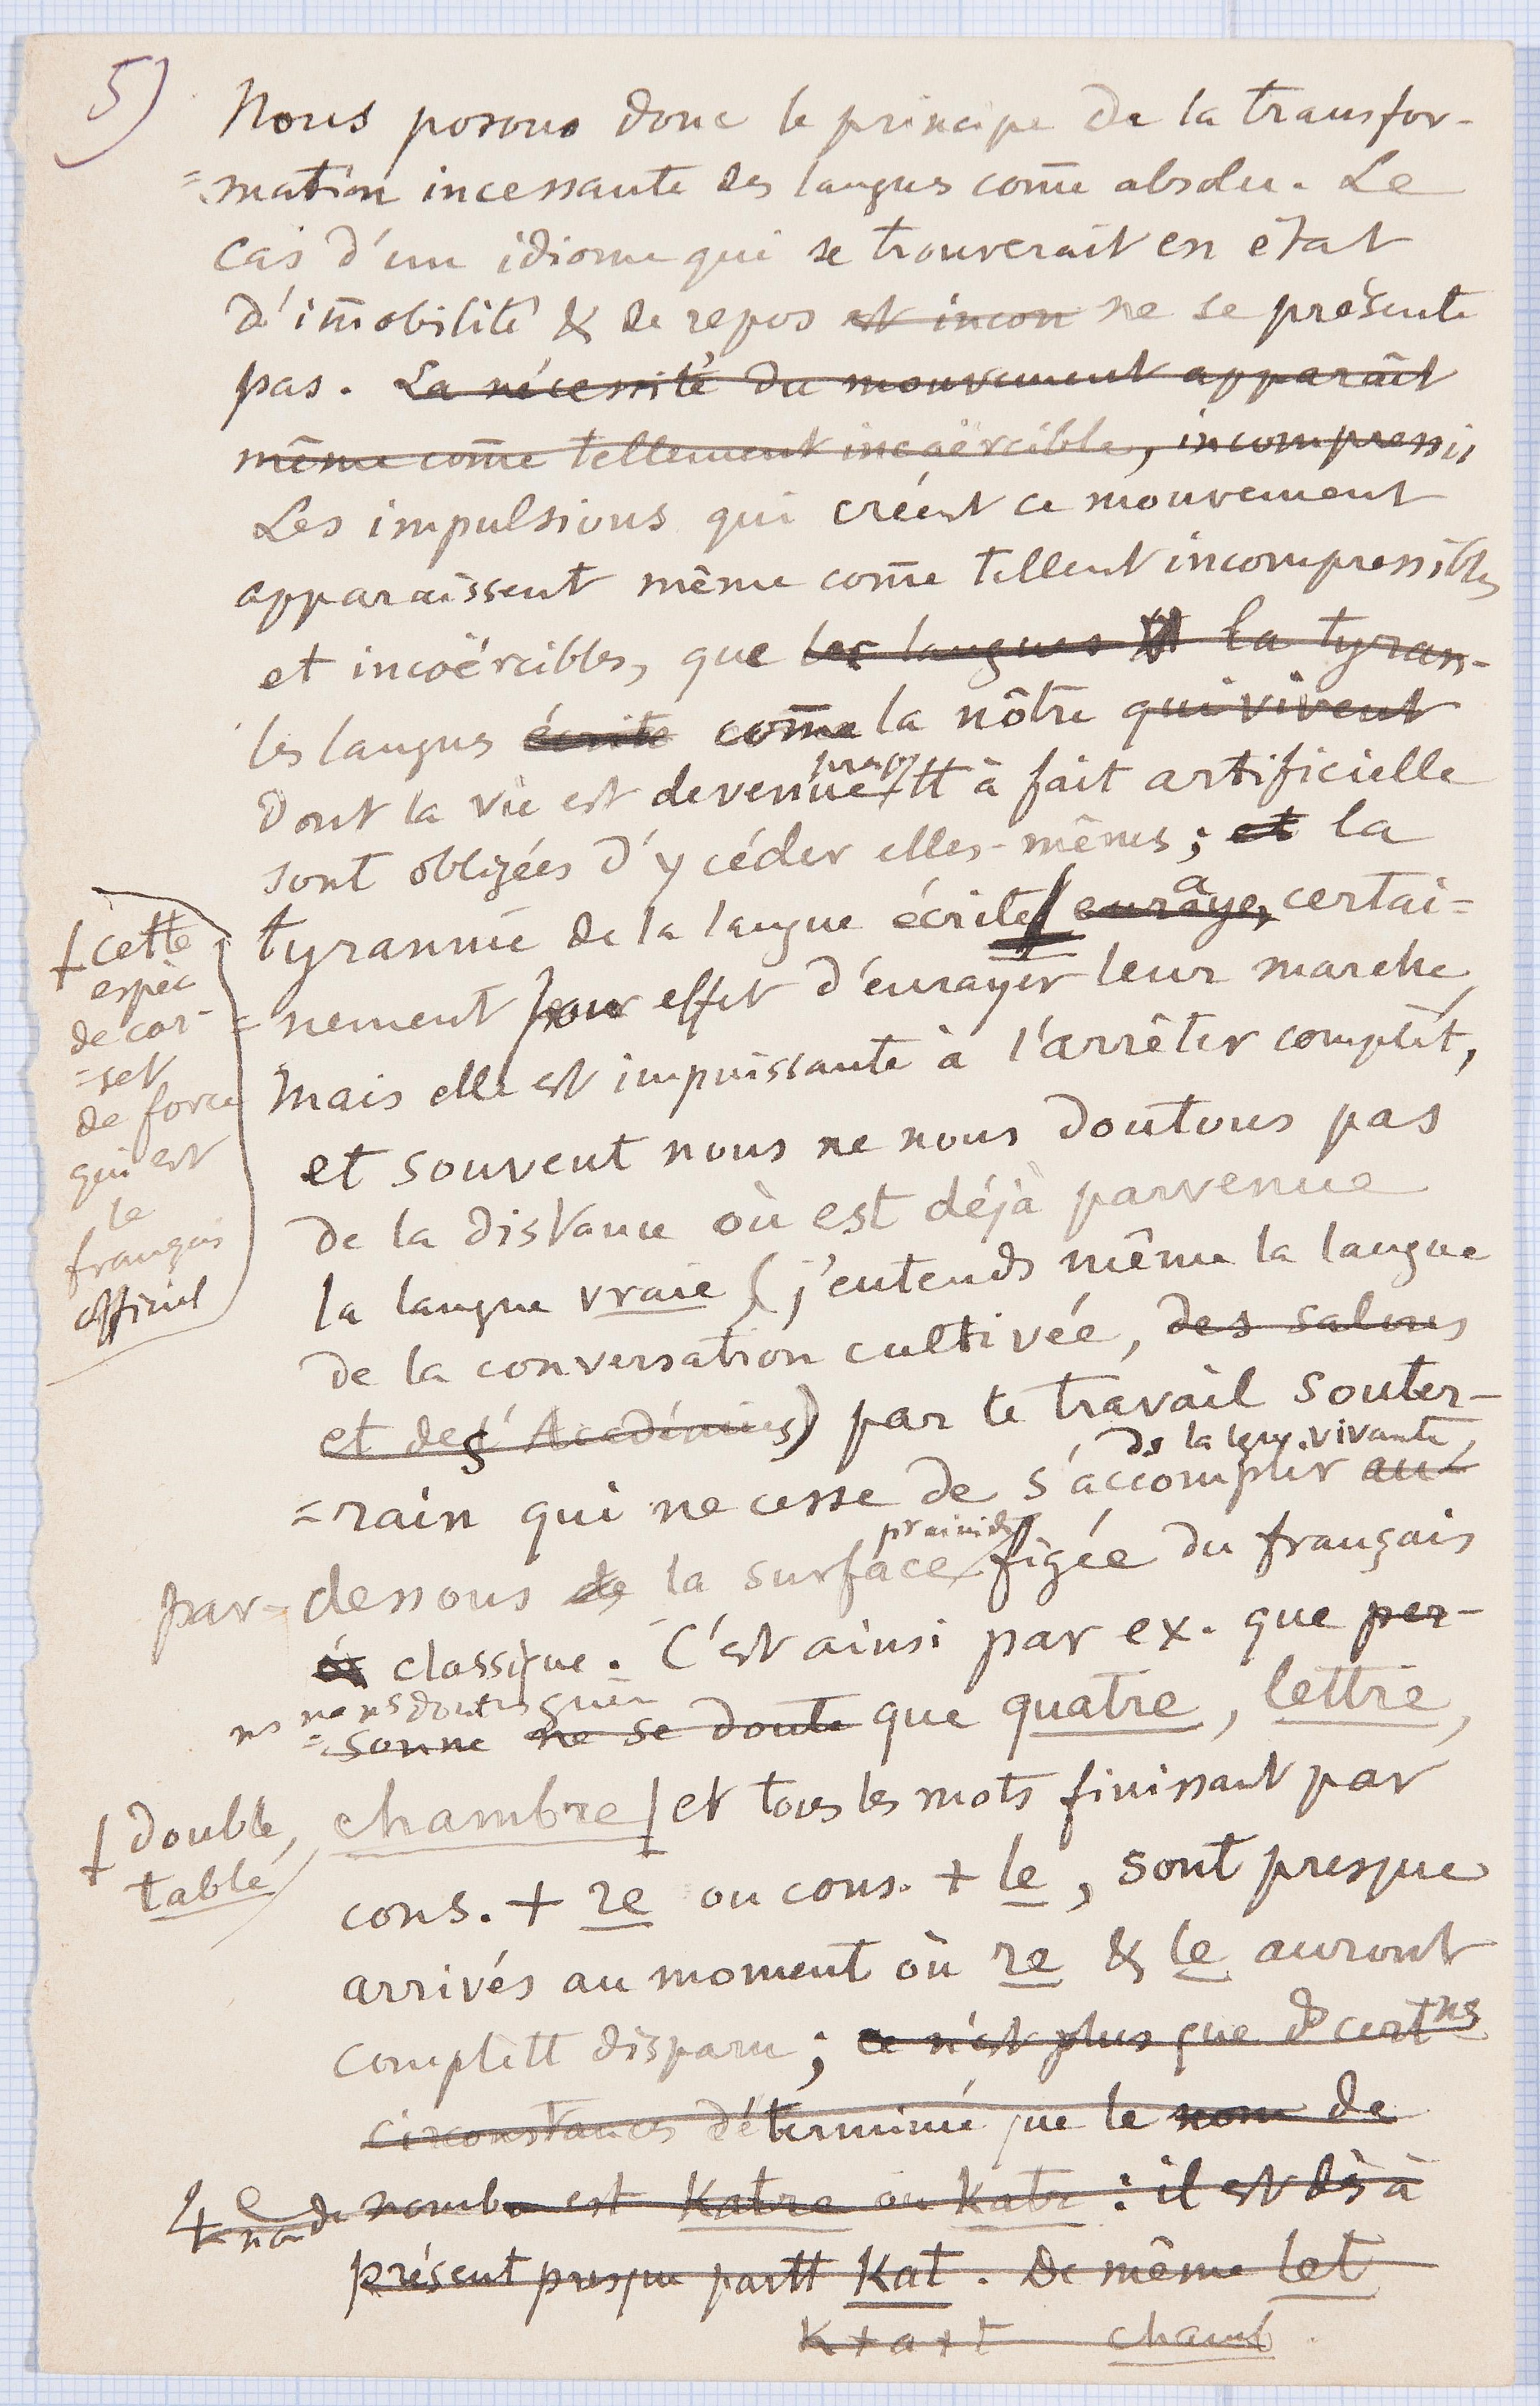 5)
Nous posons donc le principe de la transfor-
=mation incessante des langues com̄e absolu. Le
cas d'un idiome qui se trouverait en état
d'im̄obilité & de repos est incon ne se présente
pas. La nécessité du mouvement apparaît
même com̄e tellement incoërcible, incompressi
Les impulsions qui créent ce mouvement
apparaissent même com̄e tellent incompressibles
et incoërcibles, que les langues la tyran-
les langues écrite com̄e la nôtre qui vivent
presq
dont la vie est devenue tt à fait artificielle
sont obligées d'y céder elles-mêmes ; et la
tyrannie de la langue écrite enraye, a certai=
=nement pour effet d'enrayer leur marche,
mais elle est impuissante à l'arrêter complèt,
et souvent nous ne nous doutons pas
de la distance où est déjà parvenue
la langue vraie (j'entends même la langue
de la conversation cultivée, des salons
et des Académies) par le travail souter-
ds la lgue vivante,
=rain qui ne cesse de s'accomplir au-
par-dessous de la surface figée du français
classique. C'est ainsi par ex. que per-
ns ne ns doutons guère
=sonne ne se doute que quatre, lettre,
chambre et tous les mots finissant par
cons. + re ou cons. + le, sont presque
arrivés au moment où re & le auront
complètt disparu ; ce n'est plus que ds certns
circonstances déterminé que le nom de
nombre est Katre ou Katr : il est dès à
présent presque partt Kat. De même let
K+a+t chamb
† cette
espèce
de cor-
=set
de force
qui est
le
français
officiel
† double,
table
4 e nom de